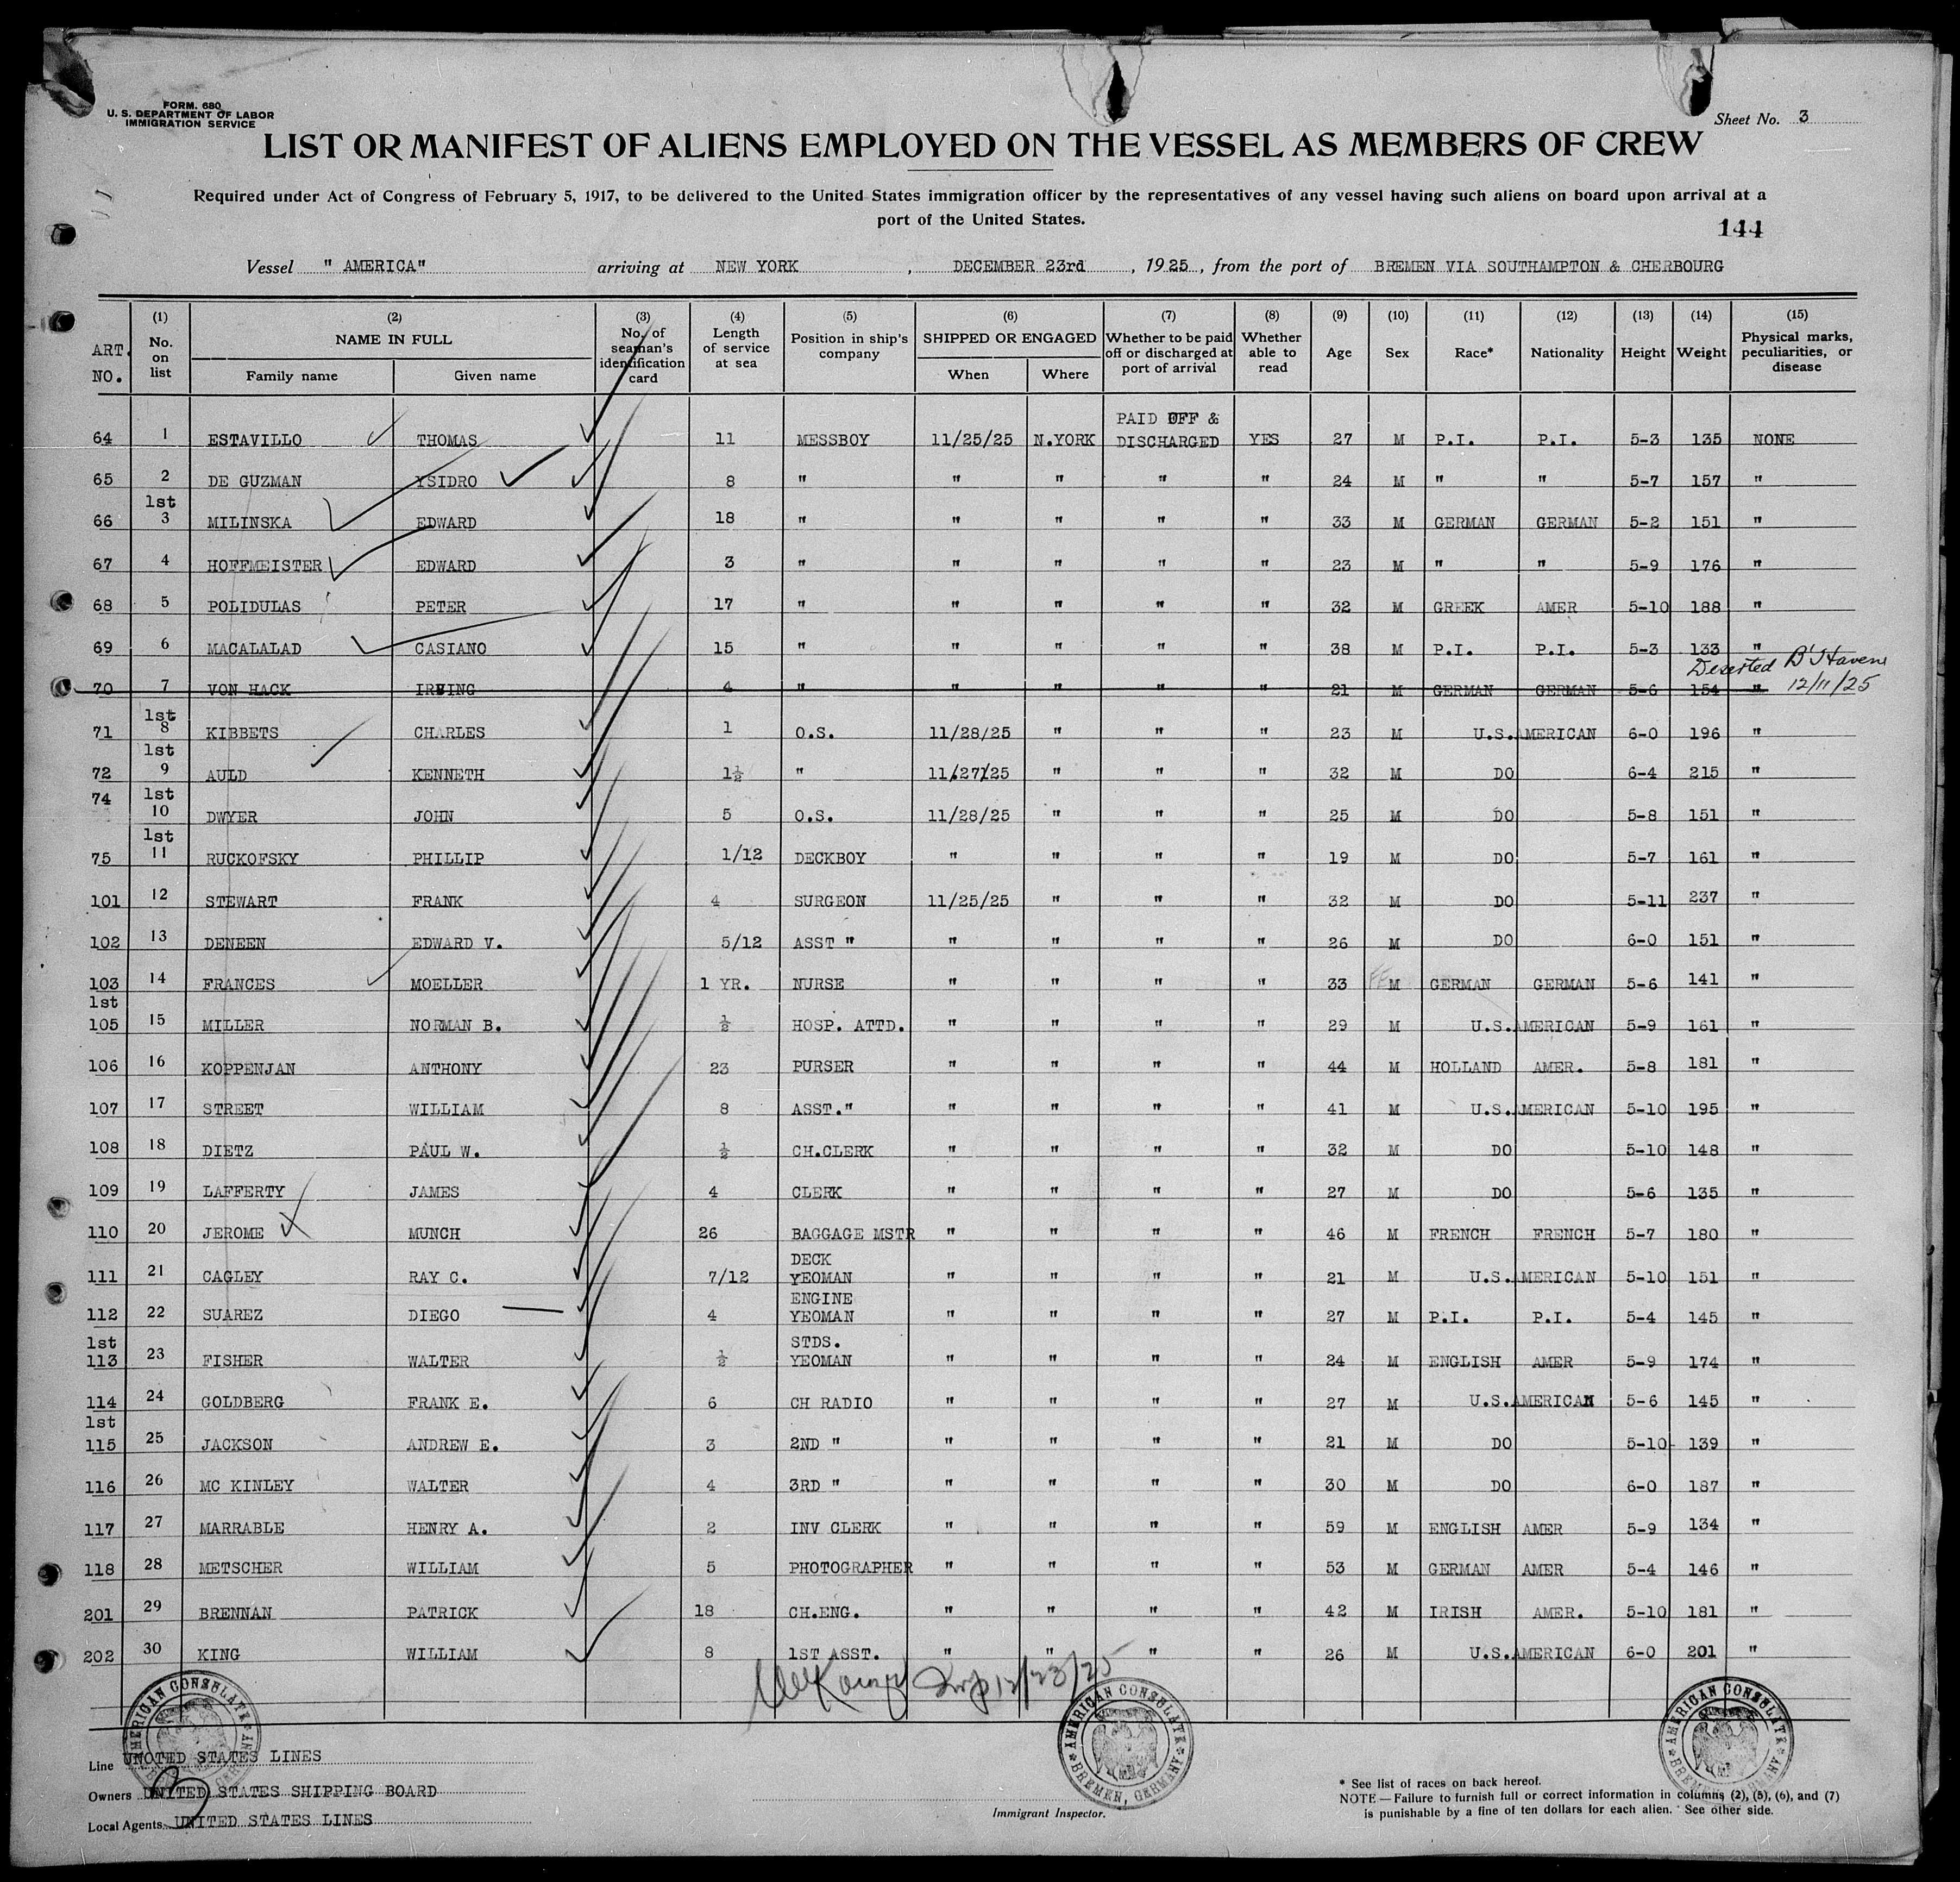 FORM. 680
U. S. DEPARTMENT OF LABOR
IMMIGRATION SERVICE
Sheet No. 3
LIST OR MANIFEST OF ALIENS EMPLOYED ON THE VESSEL AS MEMBERS OF CREW
Required under Act of Congress of February 5, 1917, to be delivered to the United States immigration officer by the representatives of any vessel having such aliens on board upon arrival at a
port of the United States.
144
Vessel " AMERICA" arriving at NEW YORK , DECEMBER 23rd , 1925 , from the port of BREMEN VIA SOUTHAMPTON & CHERBOURG
ART. NO. (1) No. on list (2) NAME IN FULL Family name Given name (3) No. of seaman's identification card (4) Length of service at sea (5) Position in ship's company (6) SHIPPED OR ENGAGED When Where (7) Whether to be paid off or discharged at port of arrival (8) Whether able to read (9) Age (10) Sex (11) Race* (12) Nationality (13) Height (14) Weight (15) Physical marks, peculiarities, or disease
PAID OFF &
64 1 ESTAVILLO THOMAS 11 MESSBOY 11/25/25 N.YORK DISCHARGED YES 27 M P.I. P.I. 5-3 135 NONE
65 2 DE GUZMAN YSIDRO 8 " " " " " 24 M " " 5-7 157 "
1st
66 3 MILINSKA EDWARD 18 " " " " " 33 M GERMAN GERMAN 5-2 151 "
67 4 HOFFMEISTER EDWARD 3 " " " " " 23 M " " 5-9 176 "
68 5 POLIDULAS PETER 17 " " " " " 32 M GREEK AMER 5-10 188 "
69 6 MACALALAD CASIANO 15 " " " " " 38 M P.I. P.I. 5-3 133 "
Deserted B'Haven
70 7 VON HACK IRVING 4 " " " " " 21 M GERMAN GERMAN 5-6 154 " 12/11/25
1st
71 8 KIBBETS CHARLES 1 O.S. 11/28/25 " " " 23 M U.S.AMERICAN 6-0 196 "
1st
72 9 AULD KENNETH 1½ " 11/27/25 " " " 32 M DO 6-4 215 "
1st
74 10 DWYER JOHN 5 O.S. 11/28/25 " " " 25 M DO 5-8 151 "
1st
75 11 RUCKOFSKY PHILLIP 1/12 DECKBOY " " " " 19 M DO 5-7 161 "
101 12 STEWART FRANK 4 SURGEON 11/25/25 " " " 32 M DO 5-11 237 "
102 13 DENEEN EDWARD V. 5/12 ASST " " " " " 26 M DO 6-0 151 "
103 14 FRANCES MOELLER 1 YR. NURSE " " " " 33 M GERMAN GERMAN 5-6 141 "
1st
105 15 MILLER NORMAN B. ½ HOSP. ATTD. " " " " 29 M U.S.AMERICAN 5-9 161 "
106 16 KOPPENJAN ANTHONY 23 PURSER " " " " 44 M HOLLAND AMER. 5-8 181 "
107 17 STREET WILLIAM 8 ASST." " " " " 41 M U.S.AMERICAN 5-10 195 "
108 18 DIETZ PAUL W. ½ CH.CLERK " " " " 32 M DO 5-10 148 "
109 19 LAFFERTY JAMES 4 CLERK " " " " 27 M DO 5-6 135 "
110 20 JEROME MUNCH 26 BAGGAGE MSTR " " " " 46 M FRENCH FRENCH 5-7 180 "
DECK
111 21 CAGLEY RAY C. 7/12 YEOMAN " " " " 21 M U.S.AMERICAN 5-10 151 "
ENGINE
112 22 SUAREZ DIEGO 4 YEOMAN " " " " 27 M P.I. P.I. 5-4 145 "
1st STDS.
113 23 FISHER WALTER ½ YEOMAN " " " " 24 M ENGLISH AMER 5-9 174 "
114 24 GOLDBERG FRANK E. 6 CH RADIO " " " " 27 M U.S.AMERICAN 5-6 145 "
1st
115 25 JACKSON ANDREW E. 3 2ND " " " " " 21 M DO 5-10 139 "
116 26 MC KINLEY WALTER 4 3RD " " " " " 30 M DO 6-0 187 "
117 27 MARRABLE HENRY A. 2 INV CLERK " " " " 59 M ENGLISH AMER 5-9 134 "
118 28 METSCHER WILLIAM 5 PHOTOGRAPHER " " " " 53 M GERMAN AMER 5-4 146 "
201 29 BRENNAN PATRICK 18 CH.ENG. " " " " 42 M IRISH AMER. 5-10 181 "
202 30 KING WILLIAM 8 1ST ASST. " " " " 26 M U.S.AMERICAN 6-0 201 "
12/23/25
AMERICAN CONSULATE
AMERICAN CONSULATE BREMEN, GERMANY
AMERICAN CONSULATE BREMEN, GERMANY
Line UNOTED STATES LINES
Owners UNITED STATES SHIPPING BOARD
Local Agents UNITED STATES LINES
Immigrant Inspector.
* See list of races on back hereof.
NOTE—Failure to furnish full or correct information in columns (2), (5), (6), and (7)
is punishable by a fine of ten dollars for each alien. See other side.